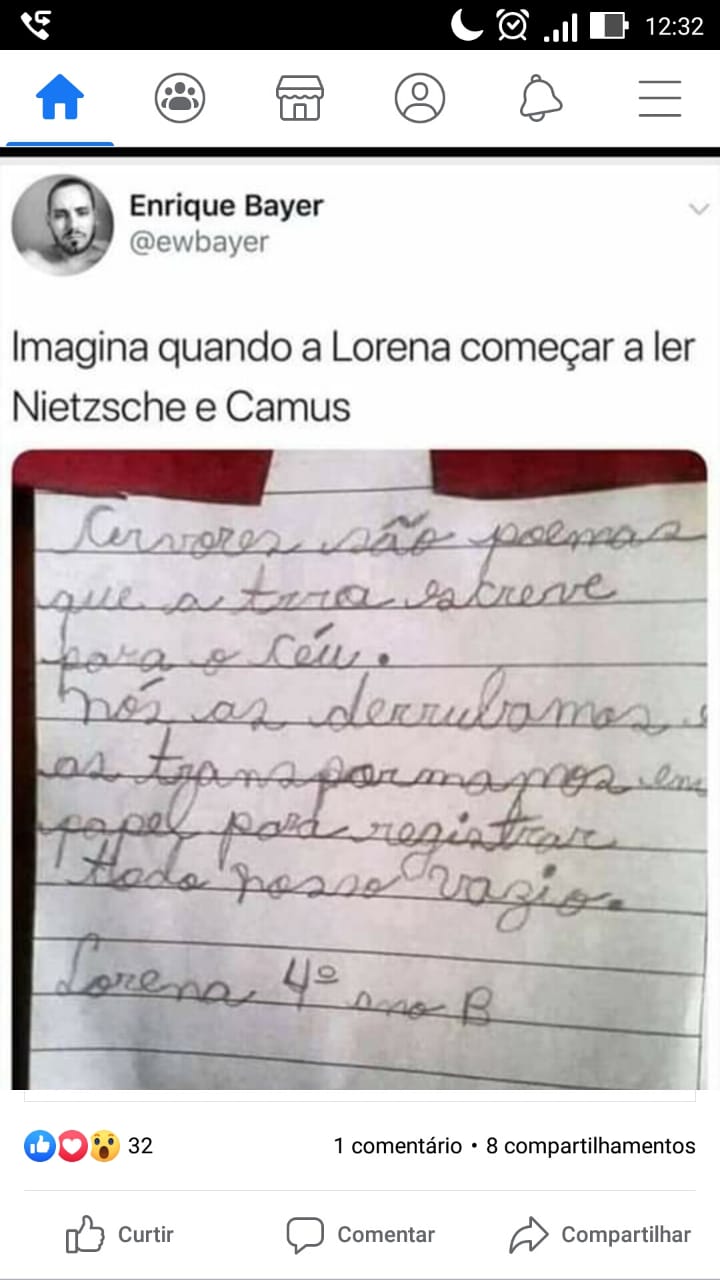 12:32
Enrique Bayer
@ewbayer
Imagina quando a Lorena começar a ler
Nietzsche e Camus
Árvores são poemas
que a terra escreve
para o céu.
Nós as derrubamos e
as transformamos em
papel para registrar
todo nosso vazio.
Lorena 4º ano B
32
1 comentário • 8 compartilhamentos
Curtir
Comentar
Compartilhar